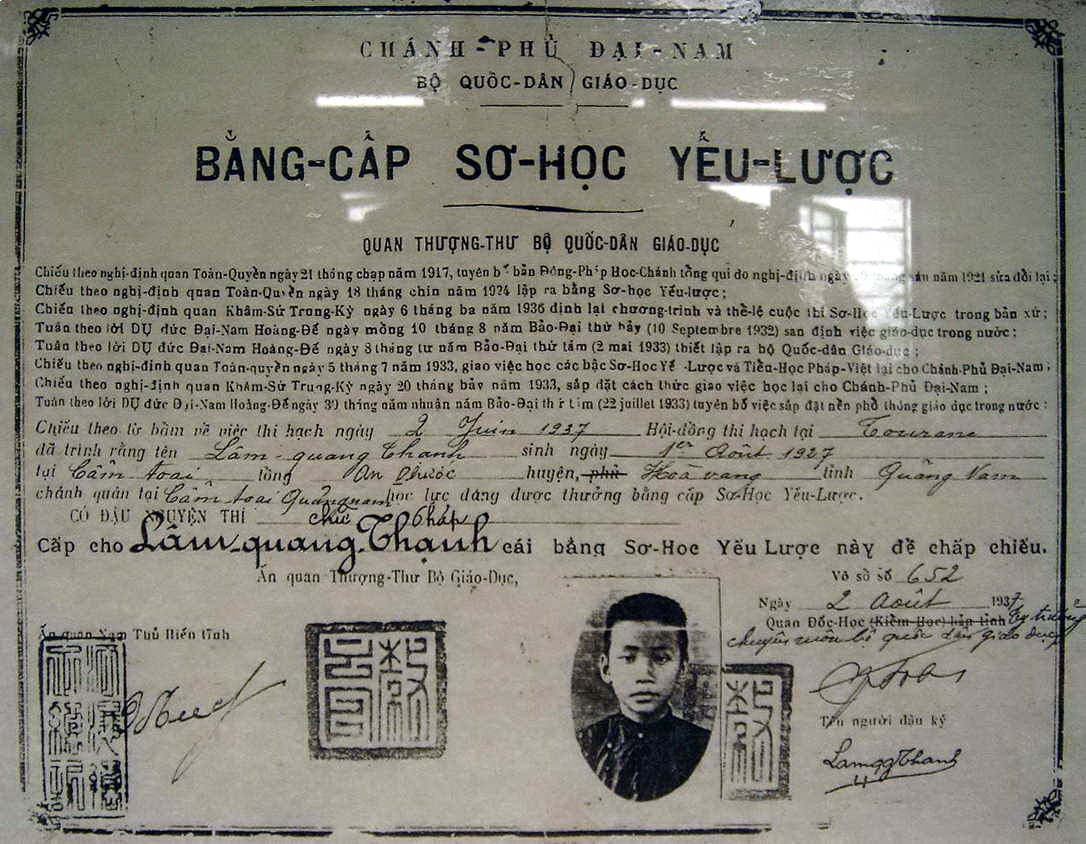 CHÁNH-PHỦ ĐẠI-NAM
BỘ QUỐC-DÂN GIÁO-DỤC
BẰNG-CẤP SƠ-HỌC YẾU-LƯỢC
QUAN THƯỢNG-THƯ BỘ QUỐC-DÂN GIÁO-DỤC
Chiếu theo nghị-định quan Toàn-Quyền ngày 21 tháng chạp năm 1917, tuyên bố bản Đông-Pháp Học-Chánh tổng qui do nghị-định ngày tháng sáu năm 1921 sửa đổi lại;
Chiếu theo nghị-định quan Toàn-Quyền ngày 18 tháng chín năm 1924 lập ra bằng Sơ-học Yếu-lược;
Chiếu theo nghị-định quan Khâm-Sứ Trung-Kỳ ngày 6 tháng ba năm 1936 định lại chương-trình và thể-lệ cuộc thi Sơ-Học Yếu-Lược trong bản xứ;
Tuân theo lời DỤ đức Đại-Nam Hoàng-Đế ngày mồng 10 tháng 8 năm Bảo-Đại thứ bảy (10 Septembre 1932) san định việc giáo-dục trong nước;
Tuân theo lời DỤ đức Đại-Nam Hoàng-Đế ngày 8 tháng tư năm Bảo-Đại thứ tám (2 mai 1933) thiết lập ra bộ Quốc-dân Giáo-dục;
Chiếu theo nghị-định quan Toàn-quyền ngày 5 tháng 7 năm 1933, giao việc học các bậc Sơ-Học Yế -Lược và Tiền-Học Pháp-Việt lại cho Chánh-Phủ Đại-Nam;
Chiếu theo nghị-định quan Khâm-Sứ Trung-Kỳ ngày 20 tháng bảy năm 1933, sắp đặt cách thức giao việc học lại cho Chánh-Phủ Đại-Nam;
Tuân theo lời DỤ đức Đại-Nam Hoàng-Đế ngày 30 tháng năm nhuận năm Bảo-Đại thứ tám (22 juillet 1933) tuyên bố việc sắp đặt nền phổ thông giáo dục trong nước:
Chiếu theo tờ bẩm về việc thi hạch ngày 2 Juin 1937 Hội-đồng thi hạch tại Tourane
đã trình rằng tên Lâm-quang Thạnh sinh ngày 1er Août 1927
tại Cẩm toại tổng An Phước huyện, phủ Hoà vang tỉnh Quảng Nam
chánh quán tại Cẩm toại Quảng nam học lực đáng được thưởng bằng cấp Sơ-Học Yếu-Lược.
CÓ ĐẬU NGUYỆN THI chữ Pháp
Cấp cho Lâm-quang-Thạnh cái bằng Sơ-Học Yếu Lược này để chấp chiếu.
Ấn quan Thượng-Thư Bộ Giáo-Dục,
Vô sổ số 652
Ngày 2 Août 1937
Ấn quan Nam Thủ Hiến tỉnh
Quan Đốc-Học (Kiểm Học) bản tỉnh
chuyên môn bộ quốc dân giáo dục
Tên người đậu ký
LamqgThanh